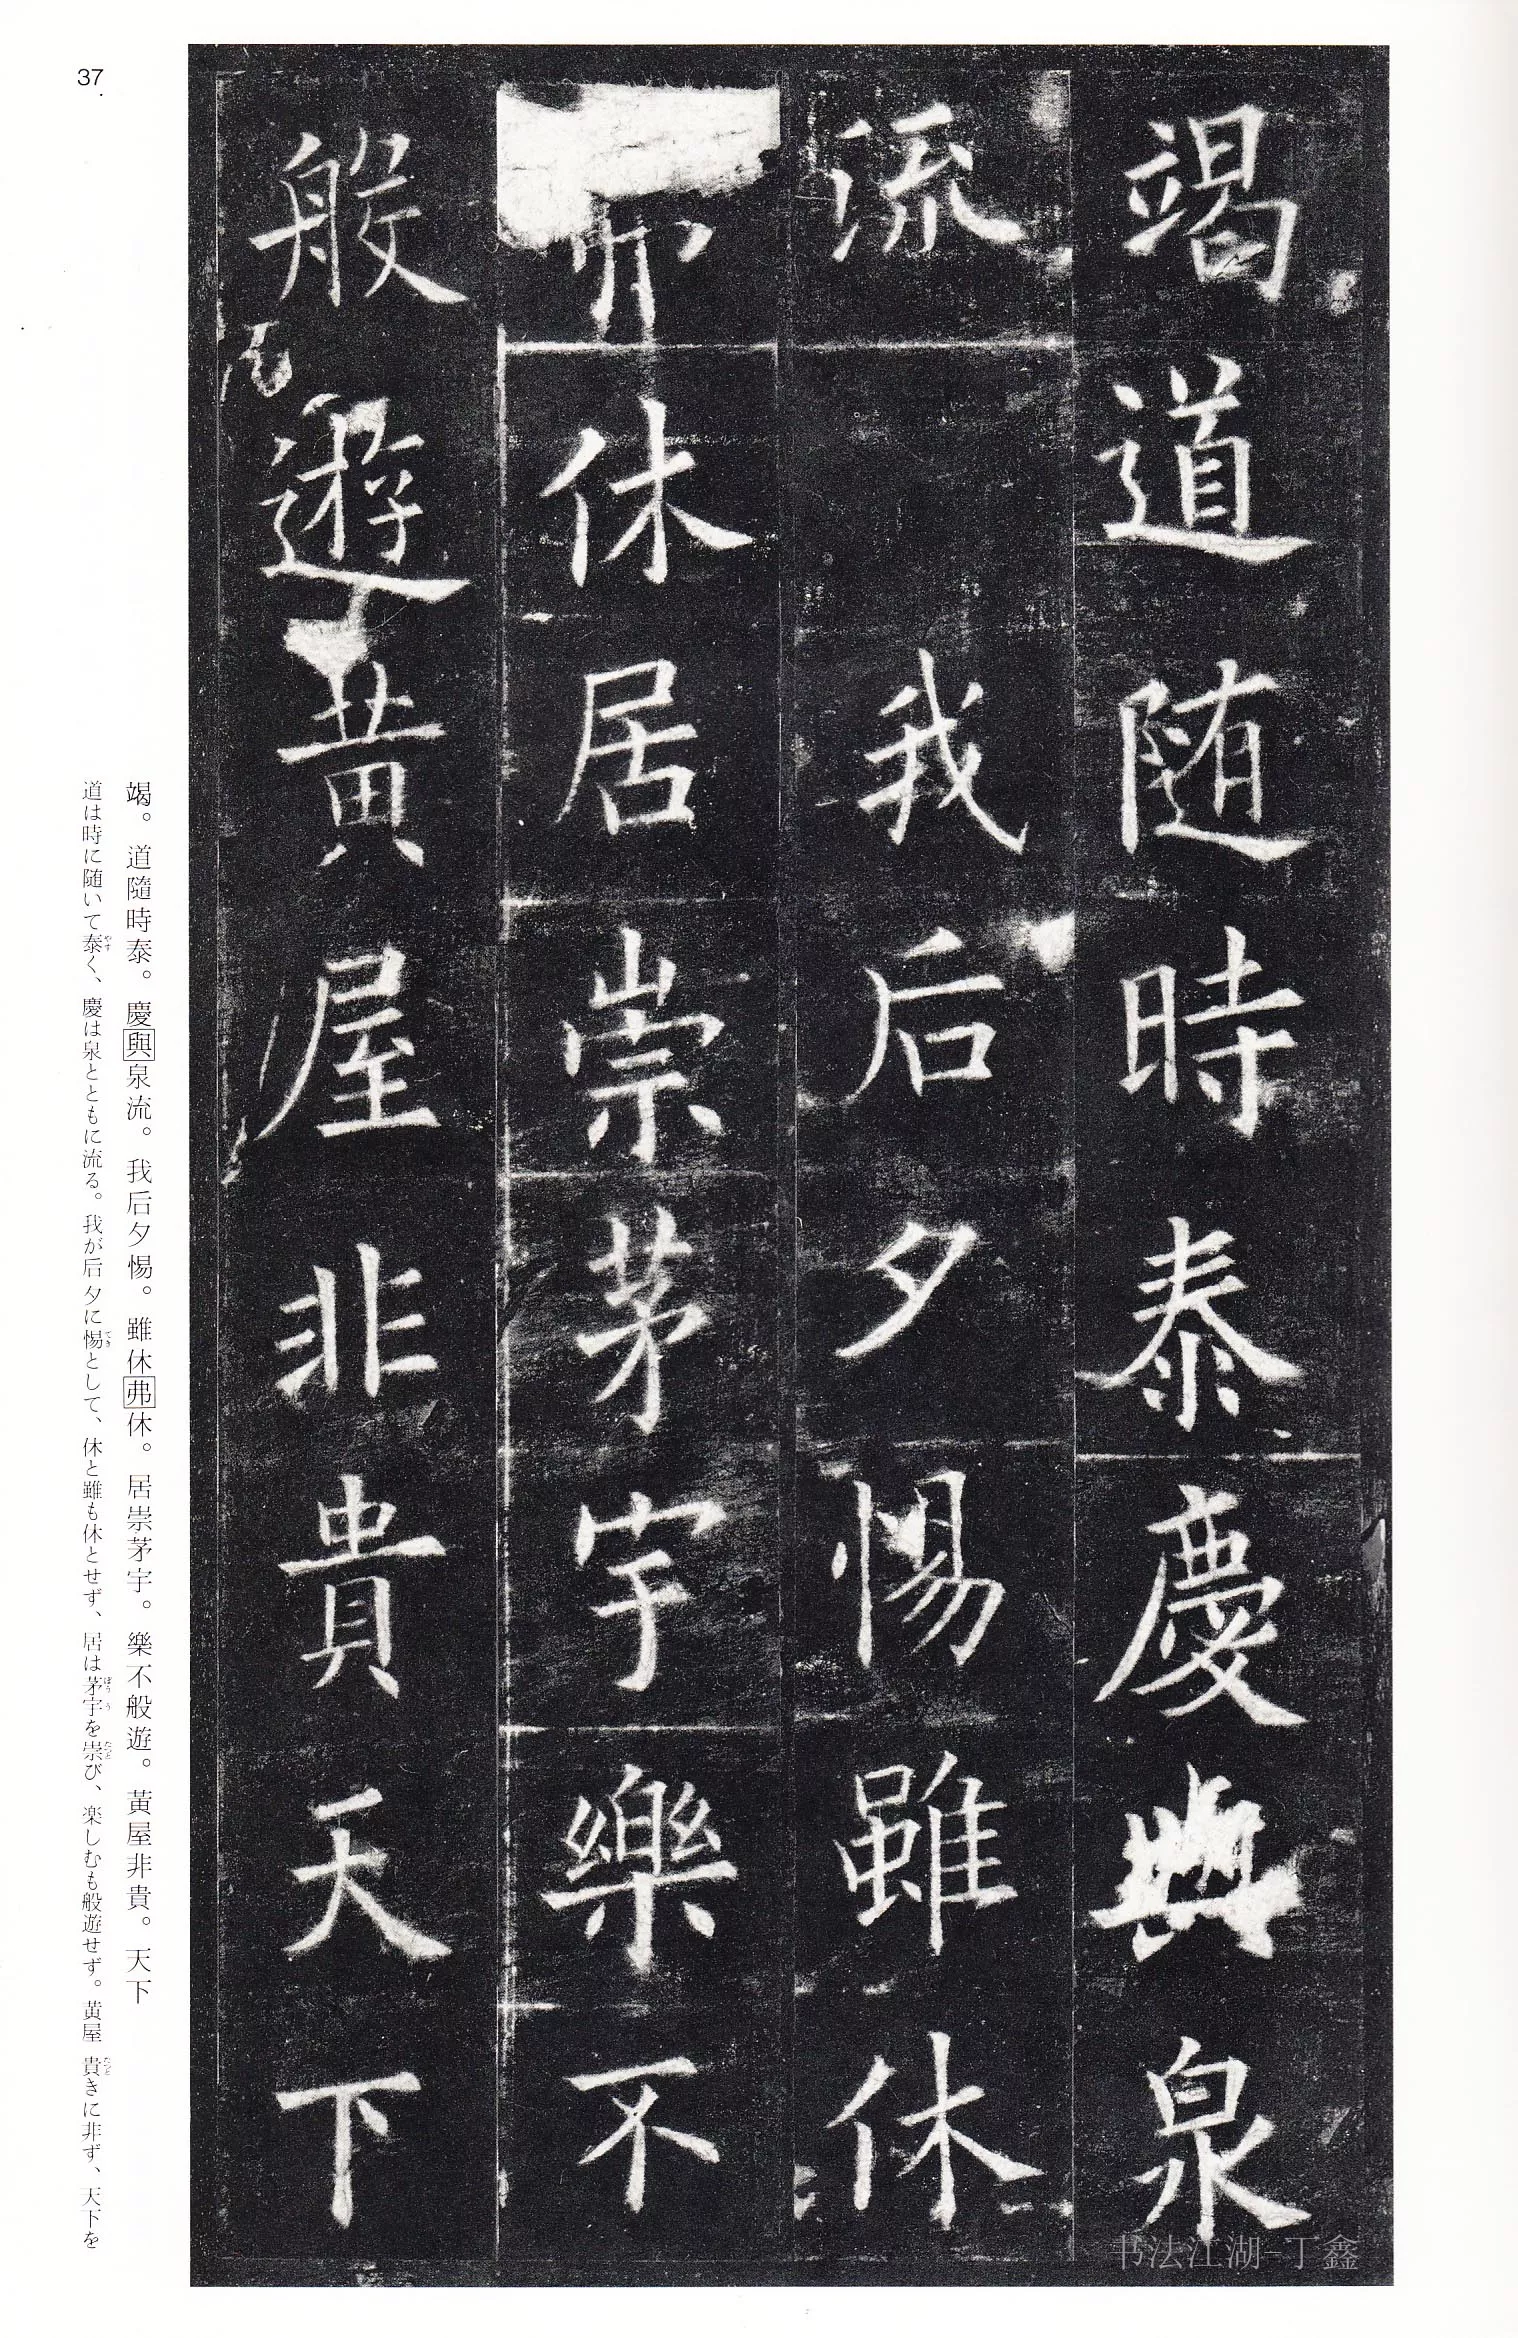 竭道随時泰慶與泉
流我后夕惕雖休
休居崇茅宇樂不
般遊黃屋非貴天下
竭。道隨時泰。慶與泉流。我后夕惕。雖休弗休。居崇茅宇。樂不般遊。黃屋非貴。天下
道は時に随いて泰く、慶は泉とともに流る。我が后夕に惕として、休と雖も休とせず、居は茅宇を崇び、楽しむも般遊せず。黄屋 貴きに非ず、天下を
37
书法江湖-丁鑫